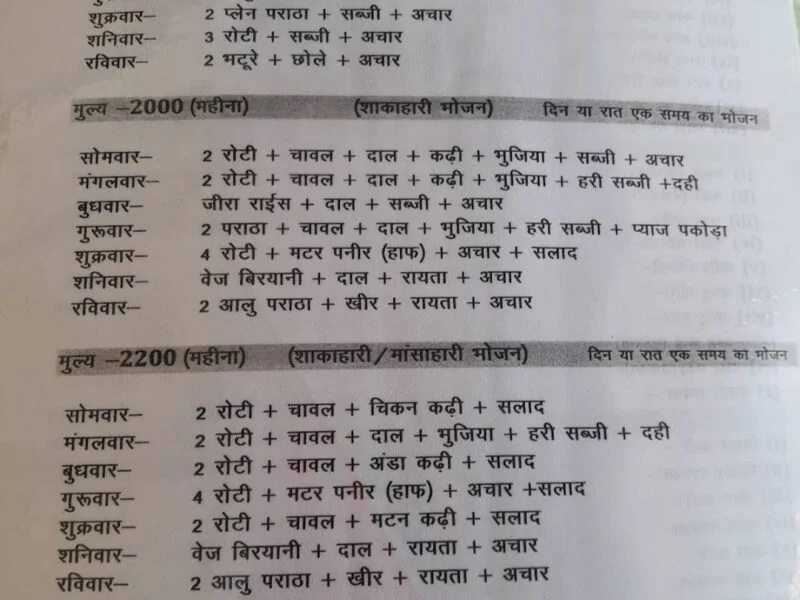 शुक्रवार– 2 प्लेन पराठा + सब्जी + अचार
शनिवार– 3 रोटी + सब्जी + अचार
रविवार– 2 भटूरे + छोले + अचार
मुल्य –2000 (महीना) (शाकाहारी भोजन) दिन या रात एक समय का भोजन
सोमवार– 2 रोटी + चावल + दाल + कढ़ी + भुजिया + सब्जी + अचार
मंगलवार– 2 रोटी + चावल + दाल + कढ़ी + भुजिया + हरी सब्जी +दही
बुधवार– जीरा राईस + दाल + सब्जी + अचार
गुरूवार– 2 पराठा + चावल + दाल + भुजिया + हरी सब्जी + प्याज पकोड़ा
शुक्रवार– 4 रोटी + मटर पनीर (हाफ) + अचार + सलाद
शनिवार– वेज बिरयानी + दाल + रायता + अचार
रविवार– 2 आलु पराठा + खीर + रायता + अचार
मुल्य –2200 (महीना) (शाकाहारी/मांसाहारी भोजन) दिन या रात एक समय का भोजन
सोमवार– 2 रोटी + चावल + चिकन कढ़ी + सलाद
मंगलवार– 2 रोटी + चावल + दाल + भुजिया + हरी सब्जी + दही
बुधवार– 2 रोटी + चावल + अंडा कढ़ी + सलाद
गुरूवार– 4 रोटी + मटर पनीर (हाफ) + अचार +सलाद
शुक्रवार– 2 रोटी + चावल + मटन कढ़ी + सलाद
शनिवार– वेज बिरयानी + दाल + रायता + अचार
रविवार– 2 आलु पराठा + खीर + रायता + अचार